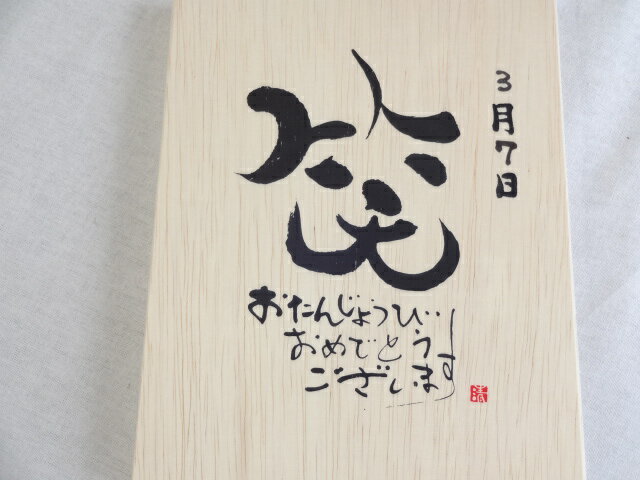 3月7日
笑
おたんじょうび
おめでとう
ございます